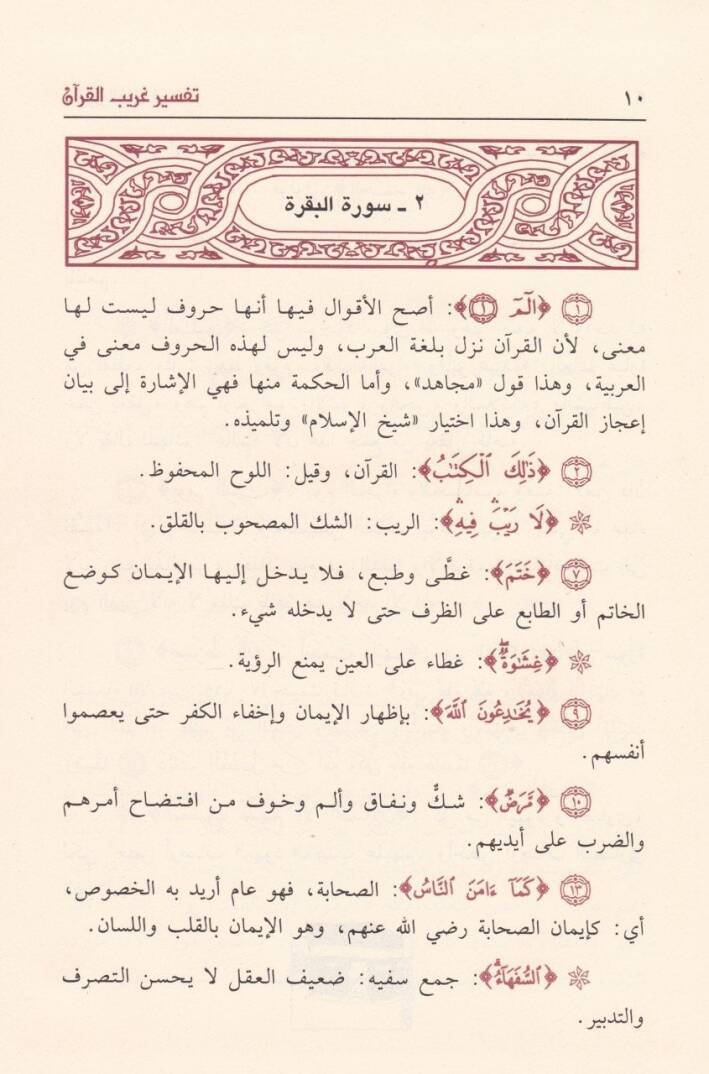 ١٠ تفسير غريب القرآن
٢ ـ سورة البقرة
١ ﴿الٓمٓ ١﴾: أصح الأقوال فيها أنها حروف ليست لها
معنى، لأن القرآن نزل بلغة العرب، وليس لهذه الحروف معنى في
العربية، وهذا قول «مجاهد»، وأما الحكمة منها فهي الإشارة إلى بيان
إعجاز القرآن، وهذا اختيار «شيخ الإسلام» وتلميذه.
٢ ﴿ذَٰلِكَ ٱلْكِتَـٰبُ﴾: القرآن، وقيل: اللوح المحفوظ.
﴿لَا رَيْبَۛ فِيهِۛ﴾: الريب: الشك المصحوب بالقلق.
٧ ﴿خَتَمَ﴾: غطَّى وطبع، فلا يدخل إليها الإيمان كوضع
الخاتم أو الطابع على الظرف حتى لا يدخله شيء.
﴿غِشَـٰوَةٌۖ﴾: غطاء على العين يمنع الرؤية.
٩ ﴿يُخَـٰدِعُونَ ٱللَّهَ﴾: بإظهار الإيمان وإخفاء الكفر حتى يعصموا
أنفسهم.
١٠ ﴿مَّرَضٌ﴾: شكٌّ ونفاق وألم وخوف من افتضاح أمرهم
والضرب على أيديهم.
١٣ ﴿كَمَآ ءَامَنَ ٱلنَّاسُ﴾: الصحابة، فهو عام أريد به الخصوص،
أي: كإيمان الصحابة رضي الله عنهم، وهو الإيمان بالقلب واللسان.
﴿ٱلسُّفَهَآءُۗ﴾: جمع سفيه: ضعيف العقل لا يحسن التصرف
والتدبير.